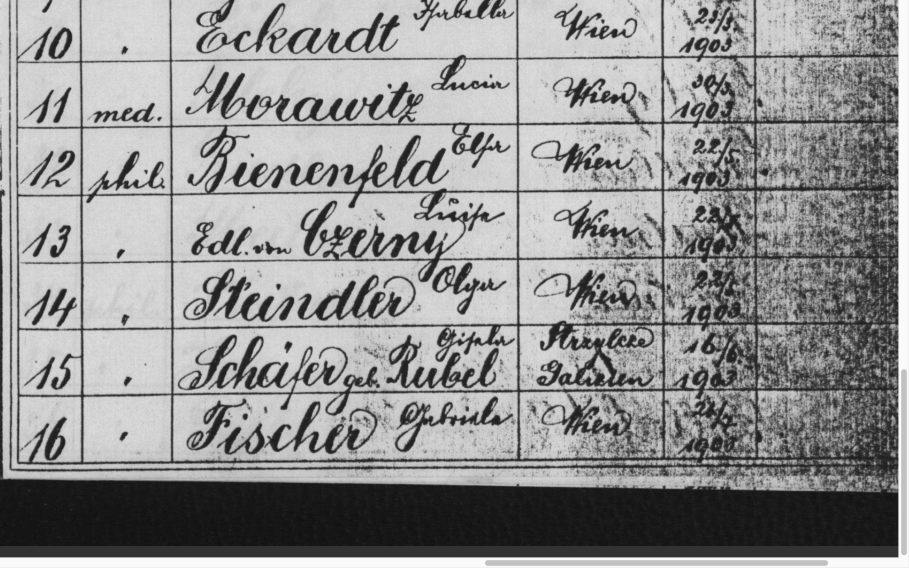 10 " Eckardt Isabella Wien 23/3 1903
11 med. Morawitz Lucia Wien 30/3 1903
12 phil. Bienenfeld Elsa Wien 22/5 1903
13 " Edl. von Czerny Luise Wien 1903
14 " Steindler Olga Wien 1903
15 " Schäfer geb. Rubel Gisela Strzylcze Galizien 16/6 1903
16 " Fischer Gabriele Wien 1903